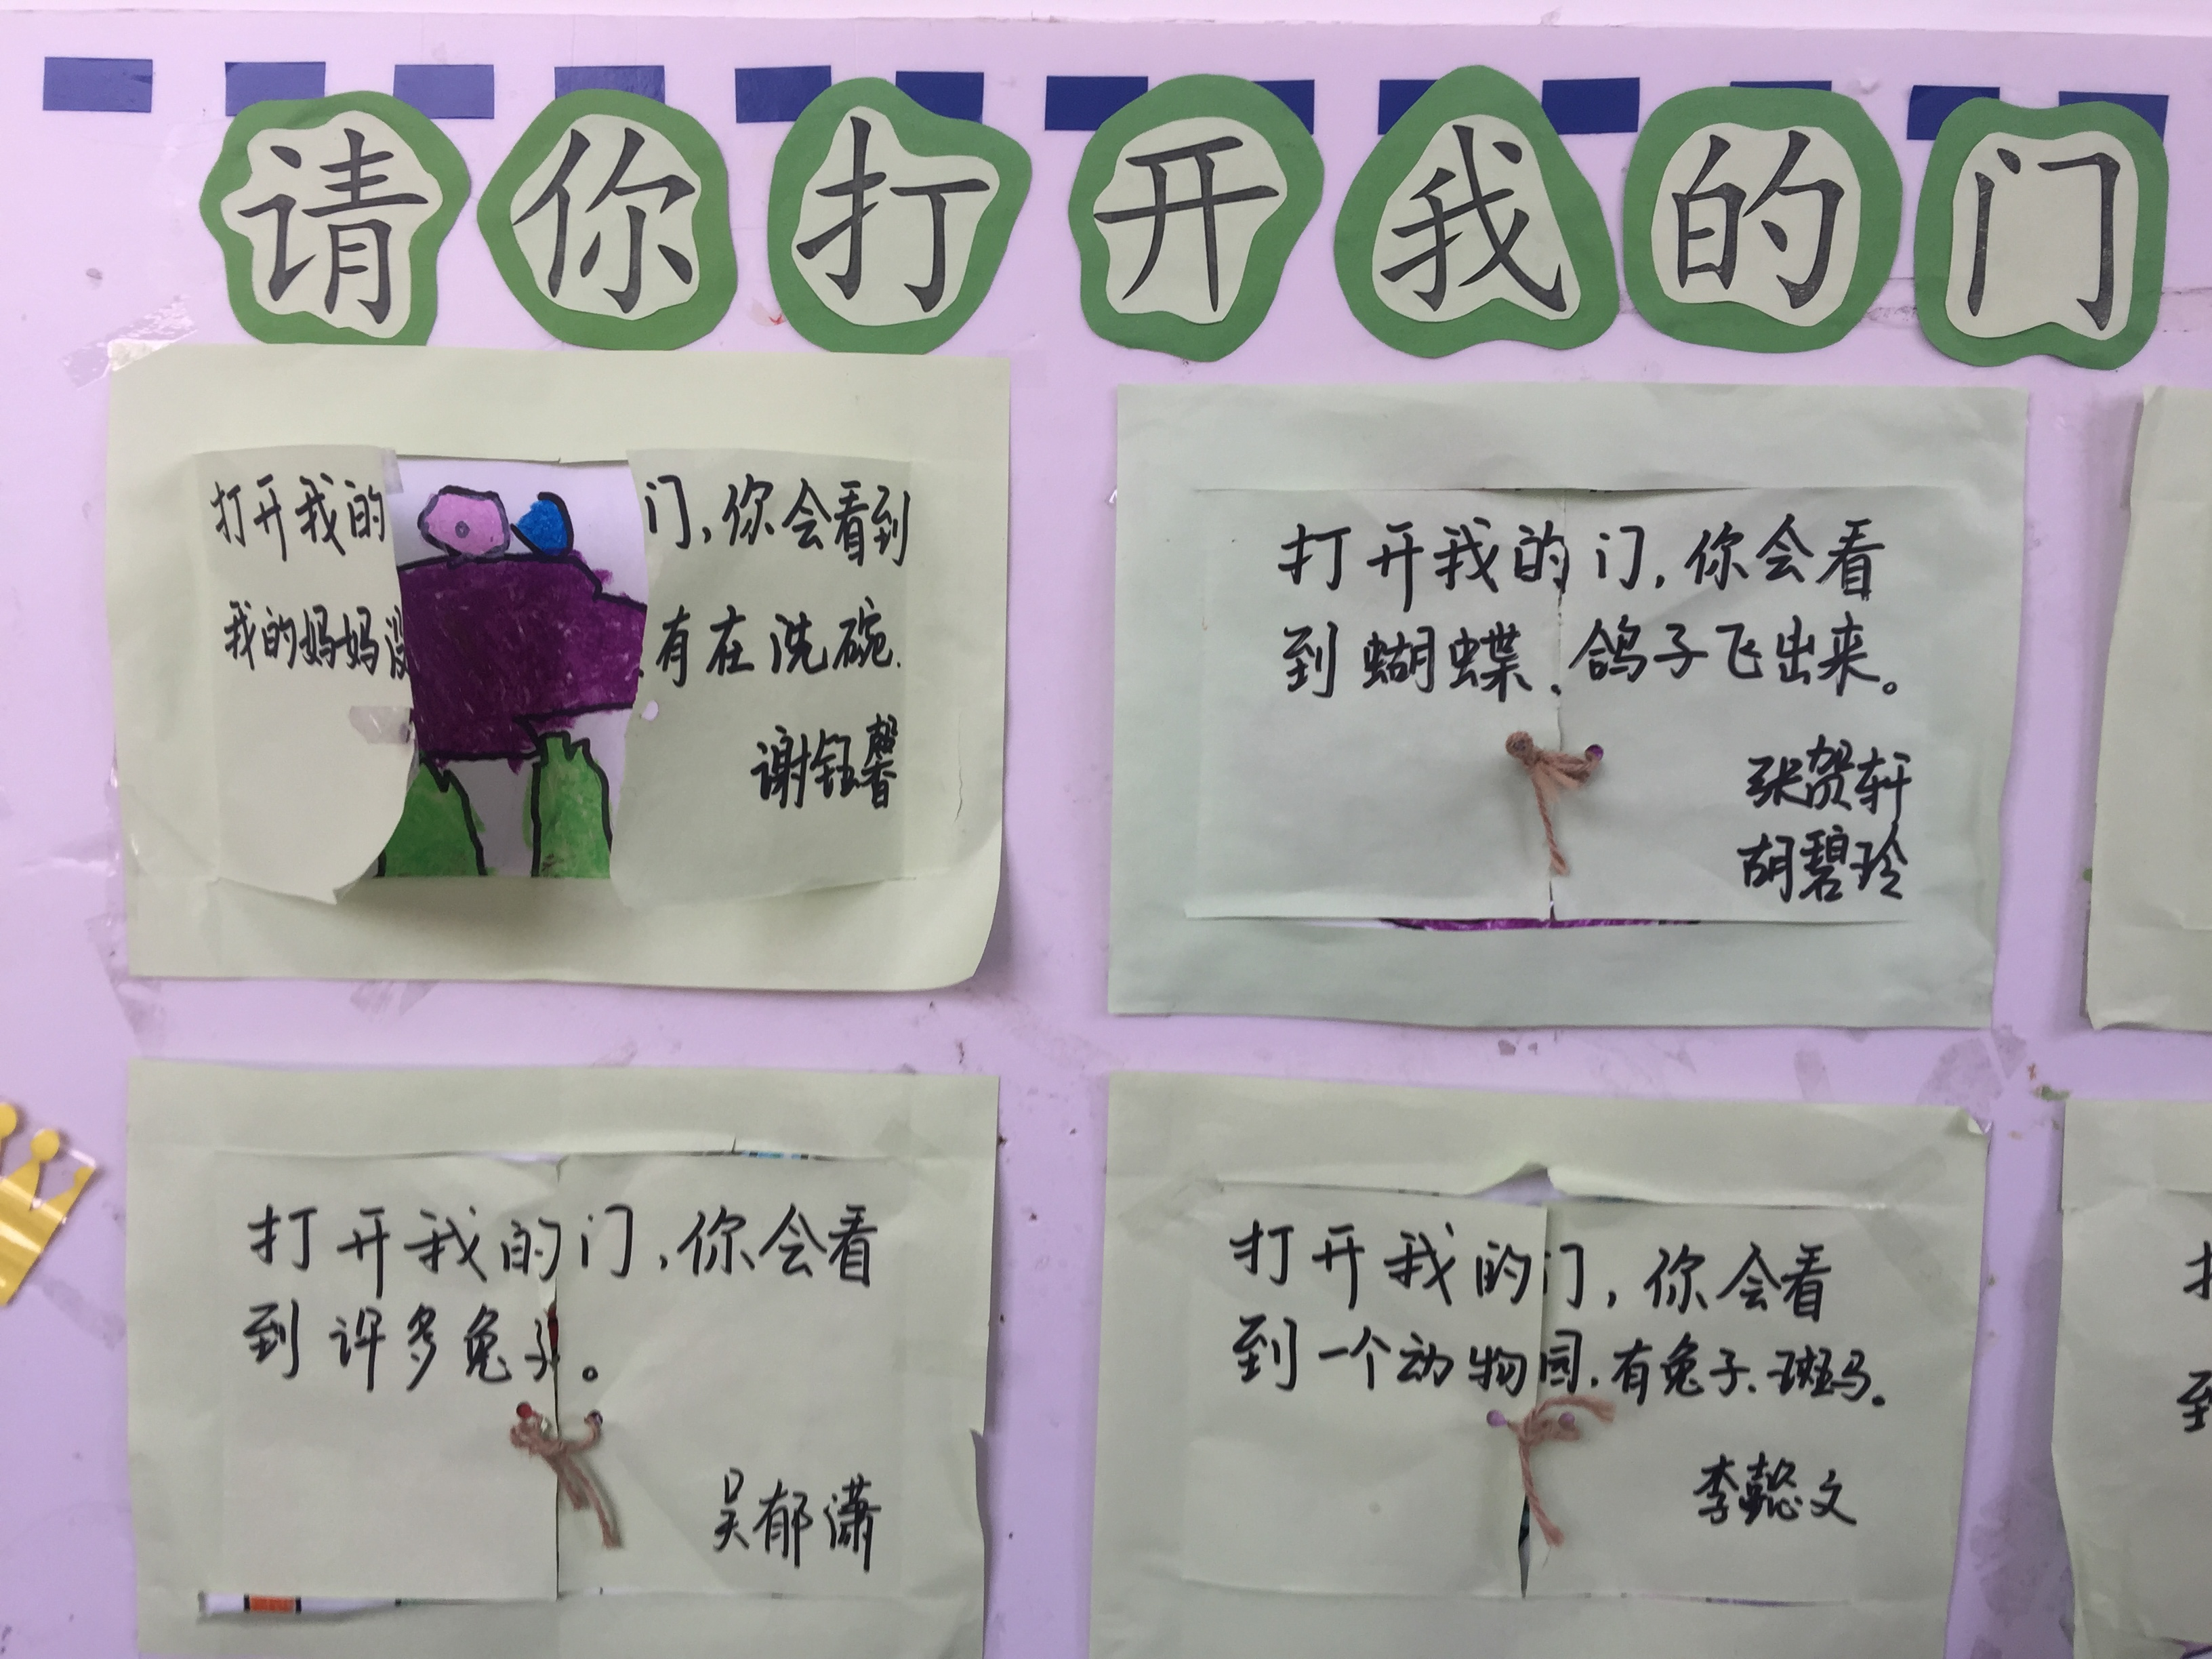 请你打开我的门
打开我的门,你会看到
我的妈妈没有在洗碗.
谢钰馨
打开我的门,你会看
到蝴蝶、鸽子飞出来。
张贺轩
胡碧玲
打开我的门,你会看
到许多兔子。
吴郁潇
打开我的门,你会看
到一个动物园.有兔子、斑马。
李懿文
到